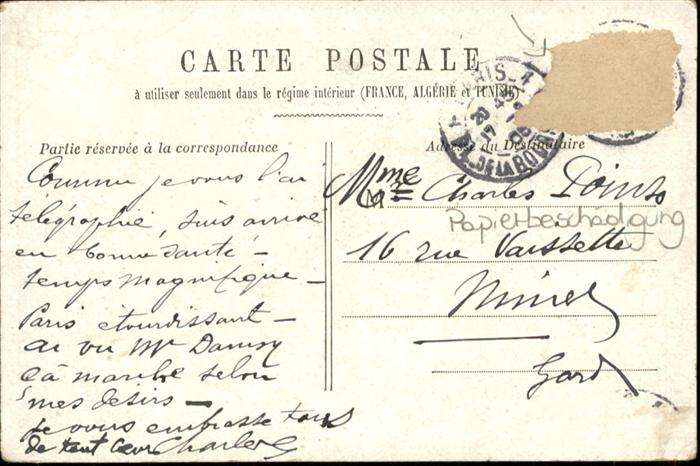 CARTE POSTALE
à utiliser seulement dans le régime intérieur (FRANCE, ALGÉRIE et TUNISIE)
Partie réservée à la correspondance
Comme je vous l'ai
télégraphié, suis arrivé
en bonne santé -
temps magnifique -
Paris étourdissant -
ai vu Mr
çà marche selon
mes désirs -
je vous embrasse tous
de tout cœur Charles
Adresse du Destinataire
M
Mme Charles Points
Papierbeschädigung
16 rue Vaissette
Nimes
Gard
PARIS
DE LA BOURSE